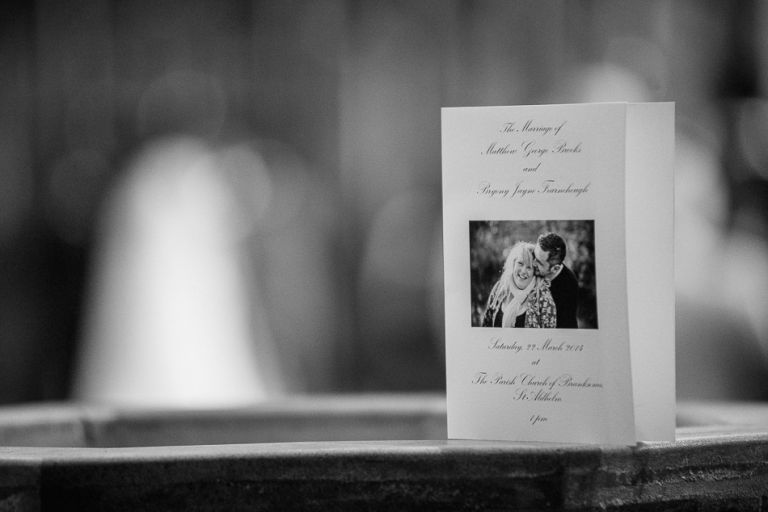 The Marriage of
Matthew George Brooks
and
Bryony Jayne Fearnehough
Saturday, 22 March 2014
at
The Parish Church of Branksome,
St Aldhelm
1 pm